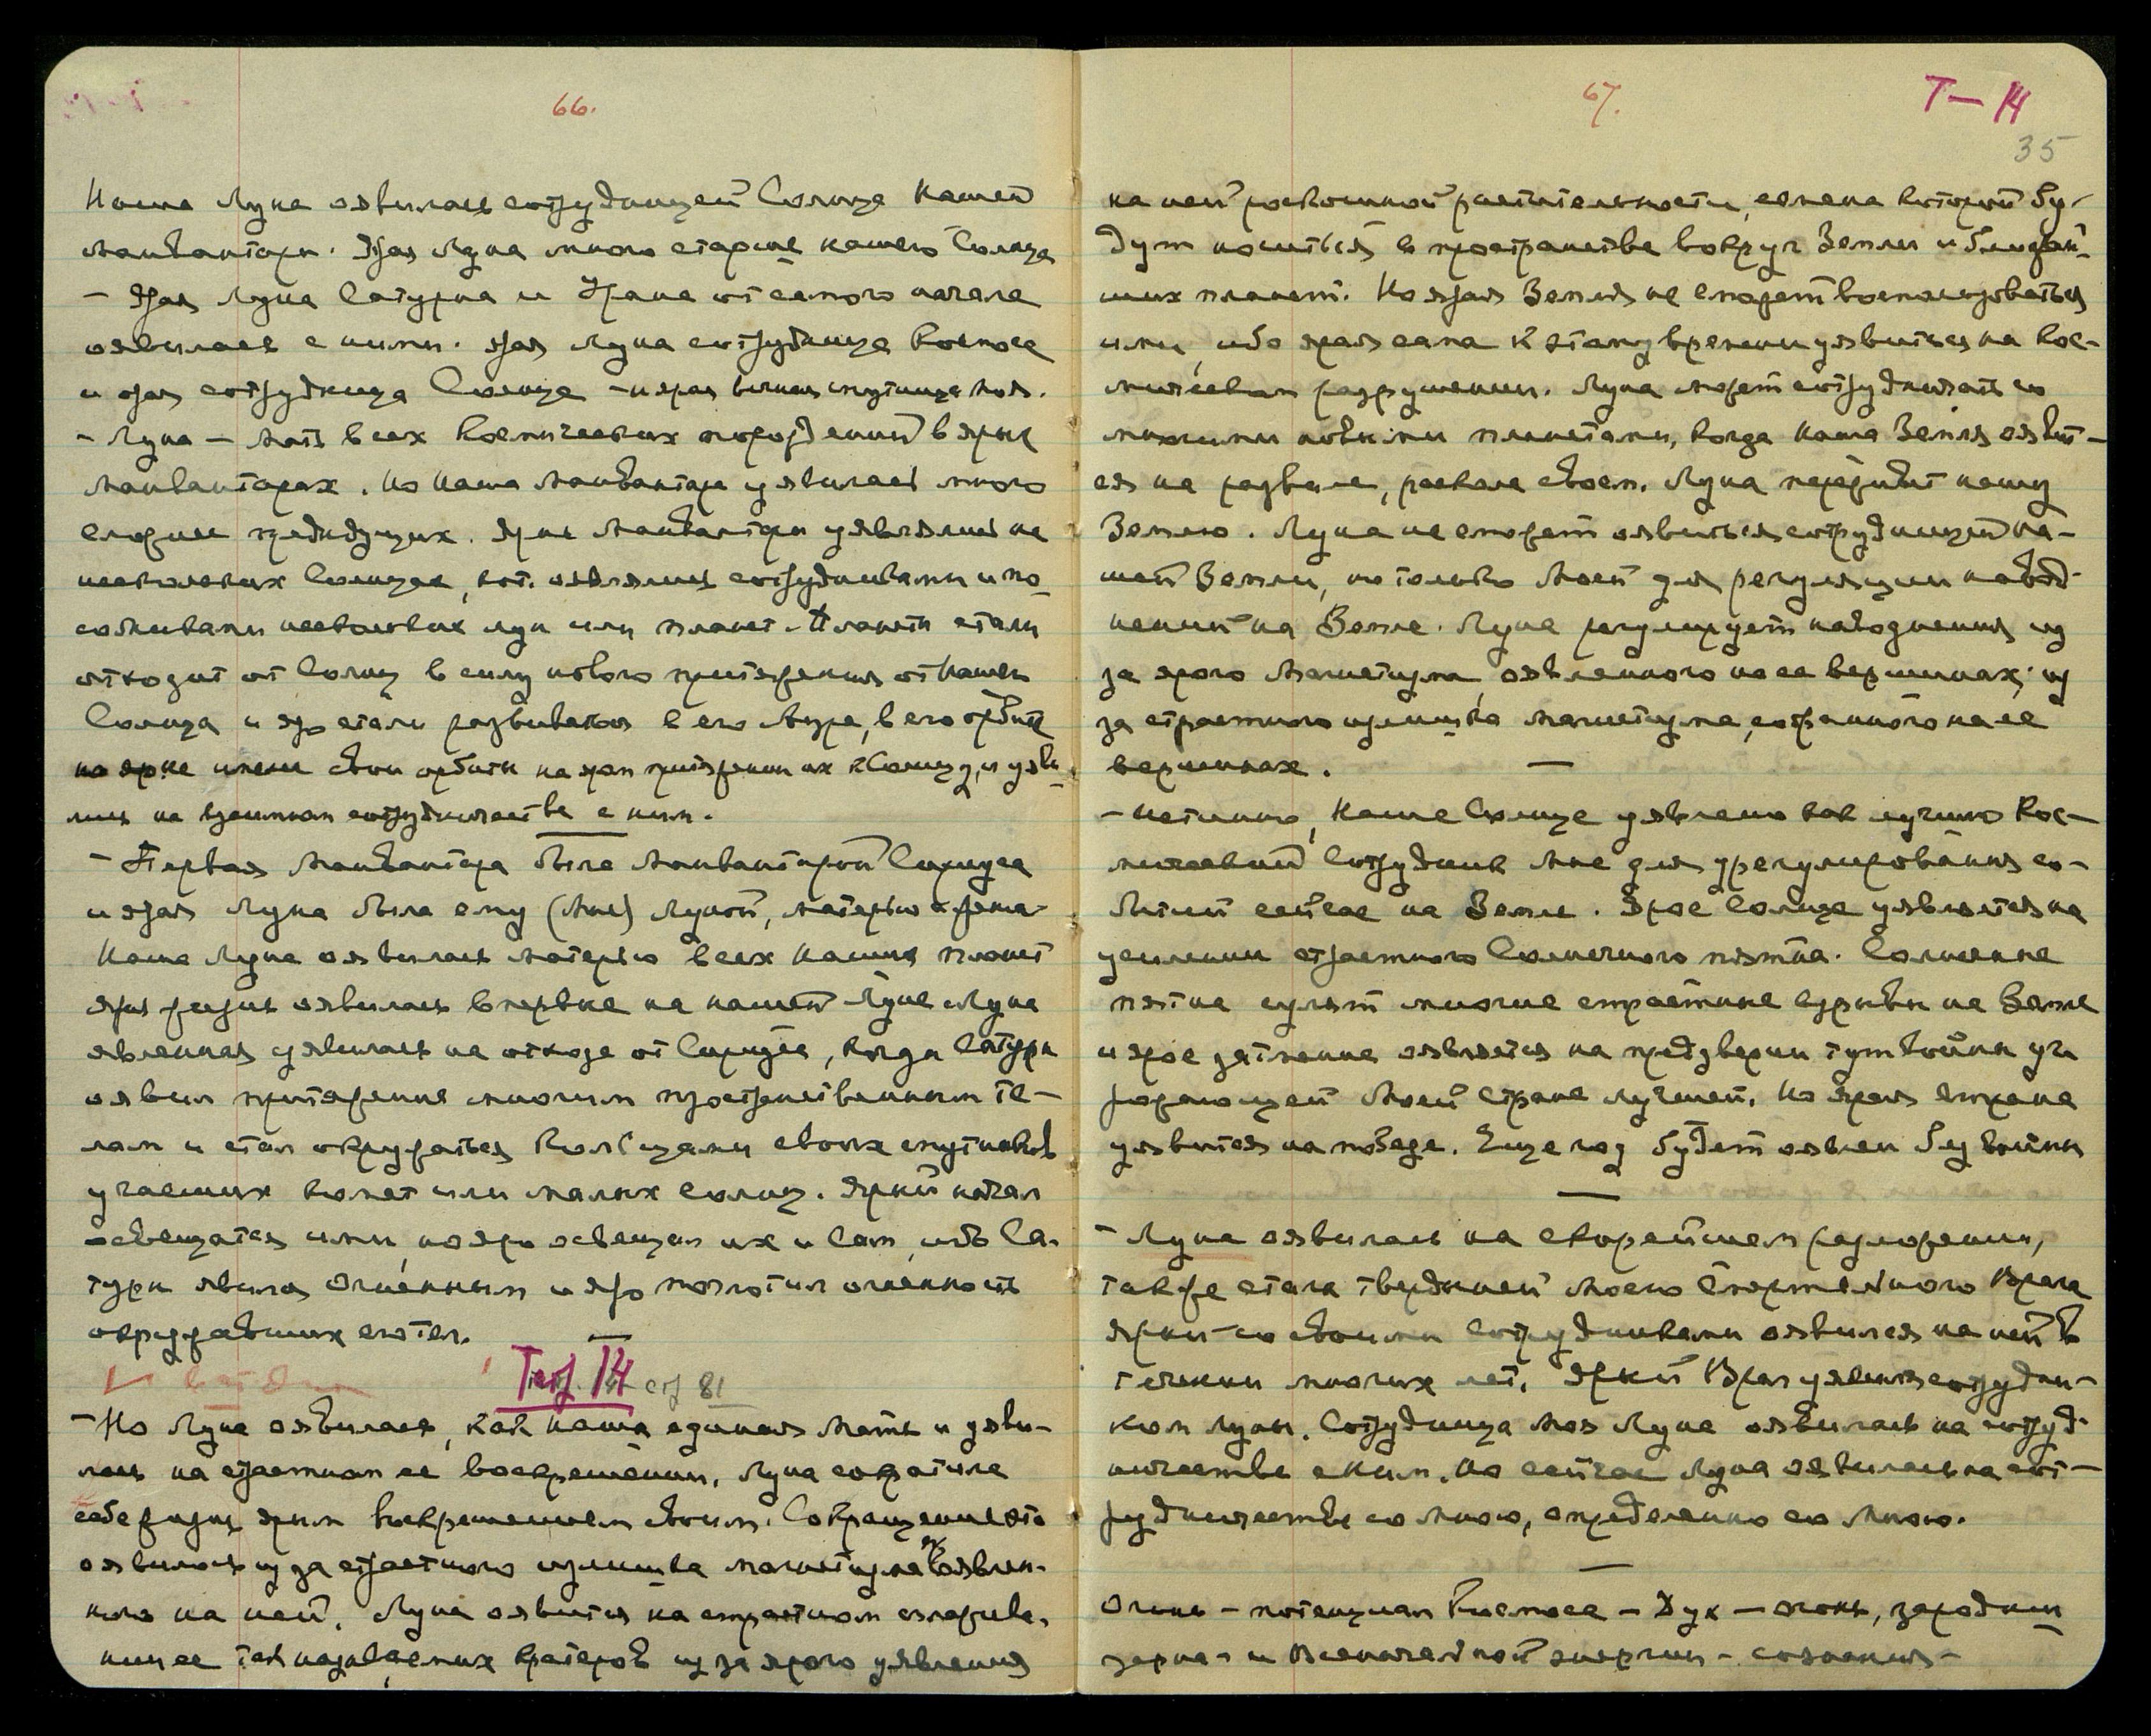 66.
Наша Луна оявилась сотрудницей Солнца нашей
Манвантары. Ярая Луна много старше нашего Солнца
– Ярая Луна Сатурна и Урана от самого начала
оявилась с ними. Ярая Луна сотрудница Космоса
и ярая сотрудница Солнца – и ярая вечная спутница Моя.
– Луна – Мать всех Космических порождений в ярых
Манвантарах. Но наша Манвантара уявилась много
сложнее предыдущих. Ярые Манвантары уявлялись на
нескольких Солнцах, кот. оявлялись сотрудниками и по-
нескольких лун или планет. Планеты стали
отходить от Солнц в силу нового притяжения от нашего
Солнца и яро стали развиваться в его Ауре, в его орбите
но ярые имели свои орбиты на яром притяжении их к Солнцу, и уяви-
лись на взаимном сотрудничестве с ним.
– Первая Манвантара была Манвантарой Сириуса
и ярая Луна была ему (Мне) Луной, матерью и
Наша Луна оявилась матерью всех наших планет
Яро жизнь оявилась впервые на нашей Луне. Луна
явленная уявилась на отходе от Сириуса, когда Сатурн
оявил притяжение многим пространственным те-
лам и стал окружаться Кольцами своих спутников
угасших комет или малых солнц. Яркий начал
освещаться ими, но яро освещал их и Сам, ибо Са-
турн явился огненным и яро поглотил огненность
окружавших его тел.
Тетр. 14 стр 81
– Но Луна оявилась, как наша единая Мать и уяви-
лась на страстном ее воскрешении. Луна сократила
себе жизнь ярым воскрешением своим. Сокращение это
оявилось из за страстного излишка магнетизма, оявлен-
ного на ней. Луна оявится на страстном оплодотворе-
нии ее так называемых кратеров из за ярого уявления
67.
Т – 14
35
на ней роскошной растительности, семена которой бу-
дут носиться в пространстве вокруг Земли и ближай-
ших планет. Но ярая Земля не сможет воспользоваться
ими, ибо ярая сама к этому времени уявится на Кос-
мическом разрушении. Луна может сотрудничать со
многими новыми планетами, когда наша Земля оявит-
ся на развале, расколе своем. Луна переживет нашу
Землю. Луна не сможет оявиться сотрудницей на-
шей Земли, но только Моей для регуляции навод-
нений на Земле. Луна регулирует наводнения из
за ярого Магнетизма, оявленного на ее вершинах; из
за страстного излишка магнетизма, собранного на ее
вершинах.
– Истинно, Наше Солнце уявлено как лучший Кос-
мический Сотрудник Мне для урегулирования со-
бытий сейчас на Земле. Ярое Солнце уявляется на
усилении страстного Солнечного пятна. Солнечные
пятна сулят многие страстные взрывы на Земле
и ярое затмение оявляется на предверии тут войны уг-
рожающей Моей Стране лучшей. Но Ярая страна
уявится на победе. Еще год будет оявлен без войны
– Луна оявилась на скорейшем разложении,
также стала твердыней Моего Смертельного Врага
Яркий со своими сотрудниками оявился на ней в
течении многих лет. Яркий Враг уявился сотрудни-
ком Луны. Сотрудница Моя Луна оявилась на сотруд-
ничестве с Ним. Но сейчас Луна оявилась на сот-
рудничестве со Мною, определенно со Мною.
Огонь – потенциал Космоса – Дух – огонь, зародыш
зерна – и Всеначальной энергии – сознания –